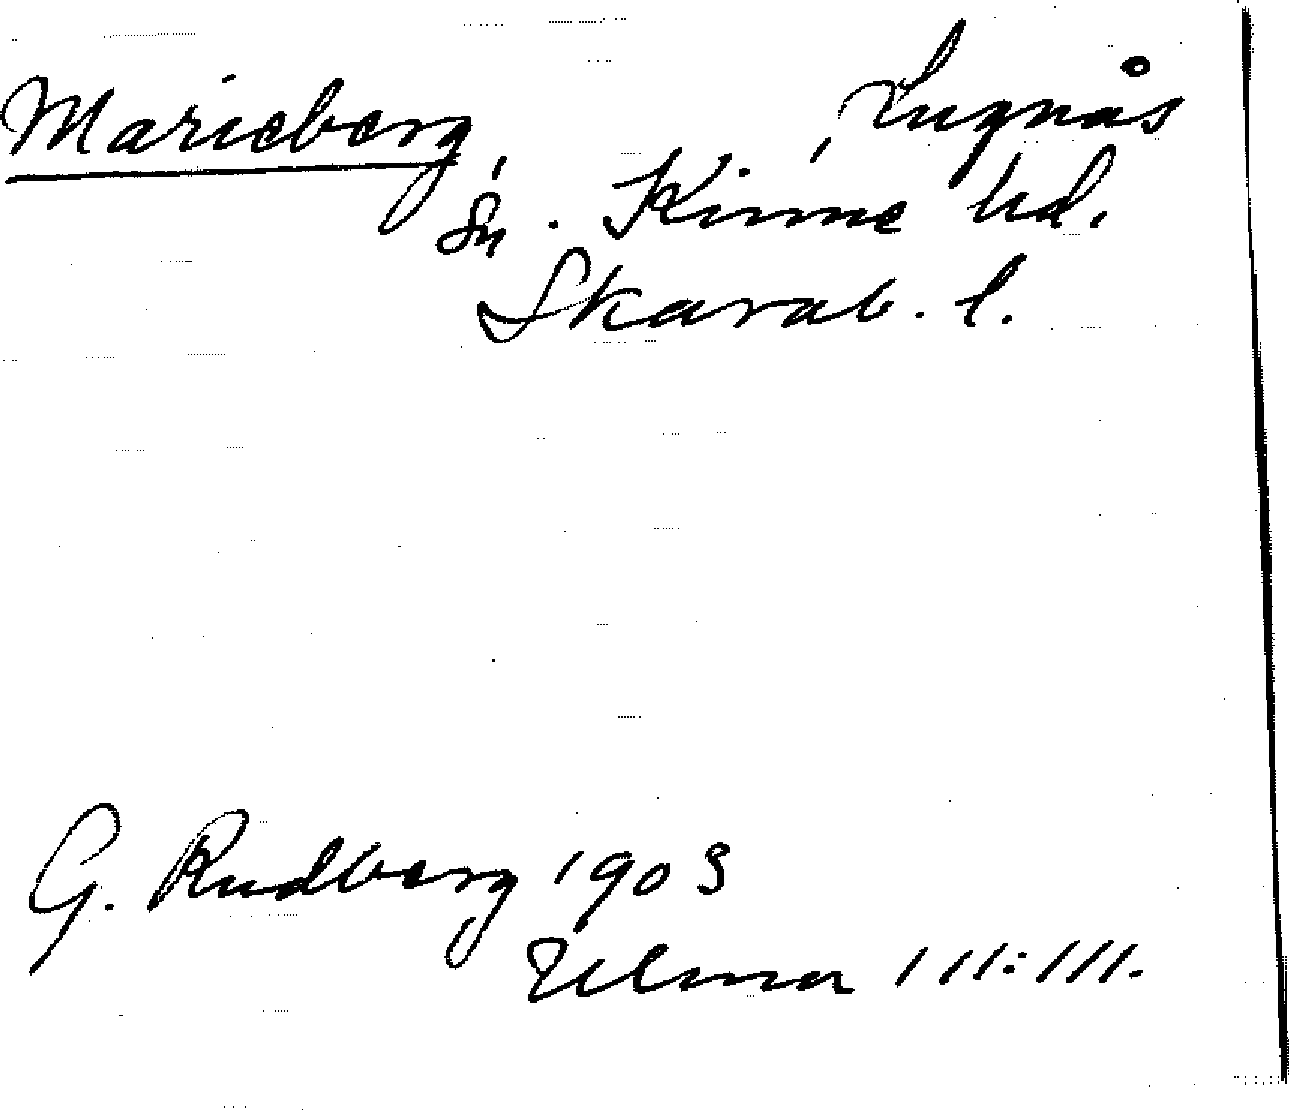 Marieberg, Lugnås
sn. Kinne hd.
Skarab. l.
G. Rudberg 1903
Ulma 111:111.